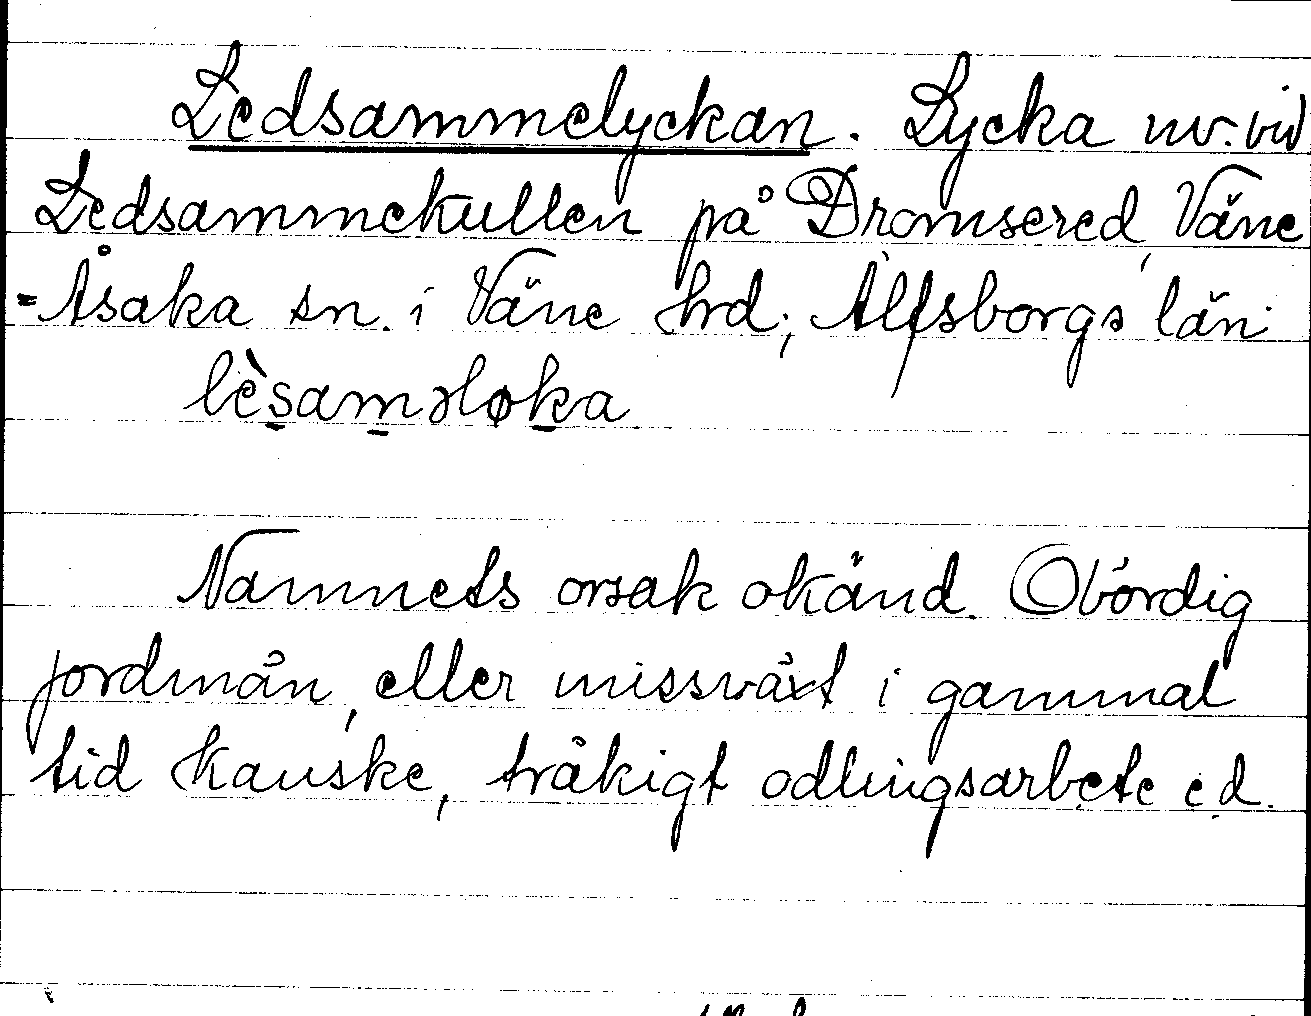 Ledsammelyckan. Lycka nv. vid
Ledsammekullen på Dromsered, Väne
-Åsaka sn. i Väne hrd; Älfsborgs län
lèsaməløka
Namnets orsak okänd. Obördig
jordmån, eller missväxt i gammal
tid kanske, tråkigt odlingsarbete e.d.